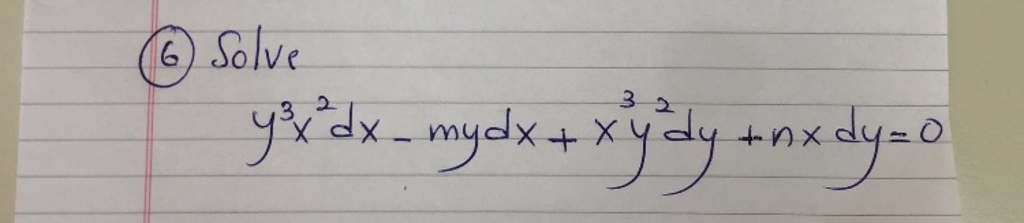 ⑥ Solve
y³x²dx - mydx + x³y²dy + nxdy = 0